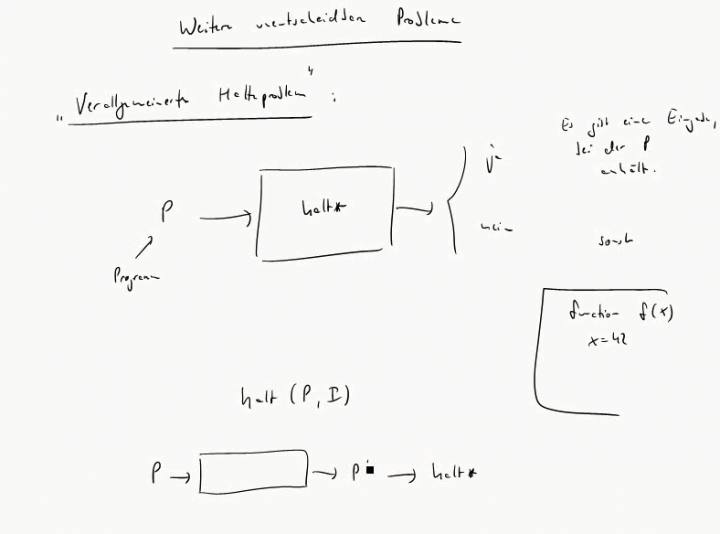 Weitere unentscheidbare Probleme
"Verallgemeinertes Halteproblem":
Es gibt eine Eingabe,
bei der P
anhält.
ja
P
halt*
nein
sonst
Programm
function f(x)
x=42
halt (P, I)
P
P'
halt*